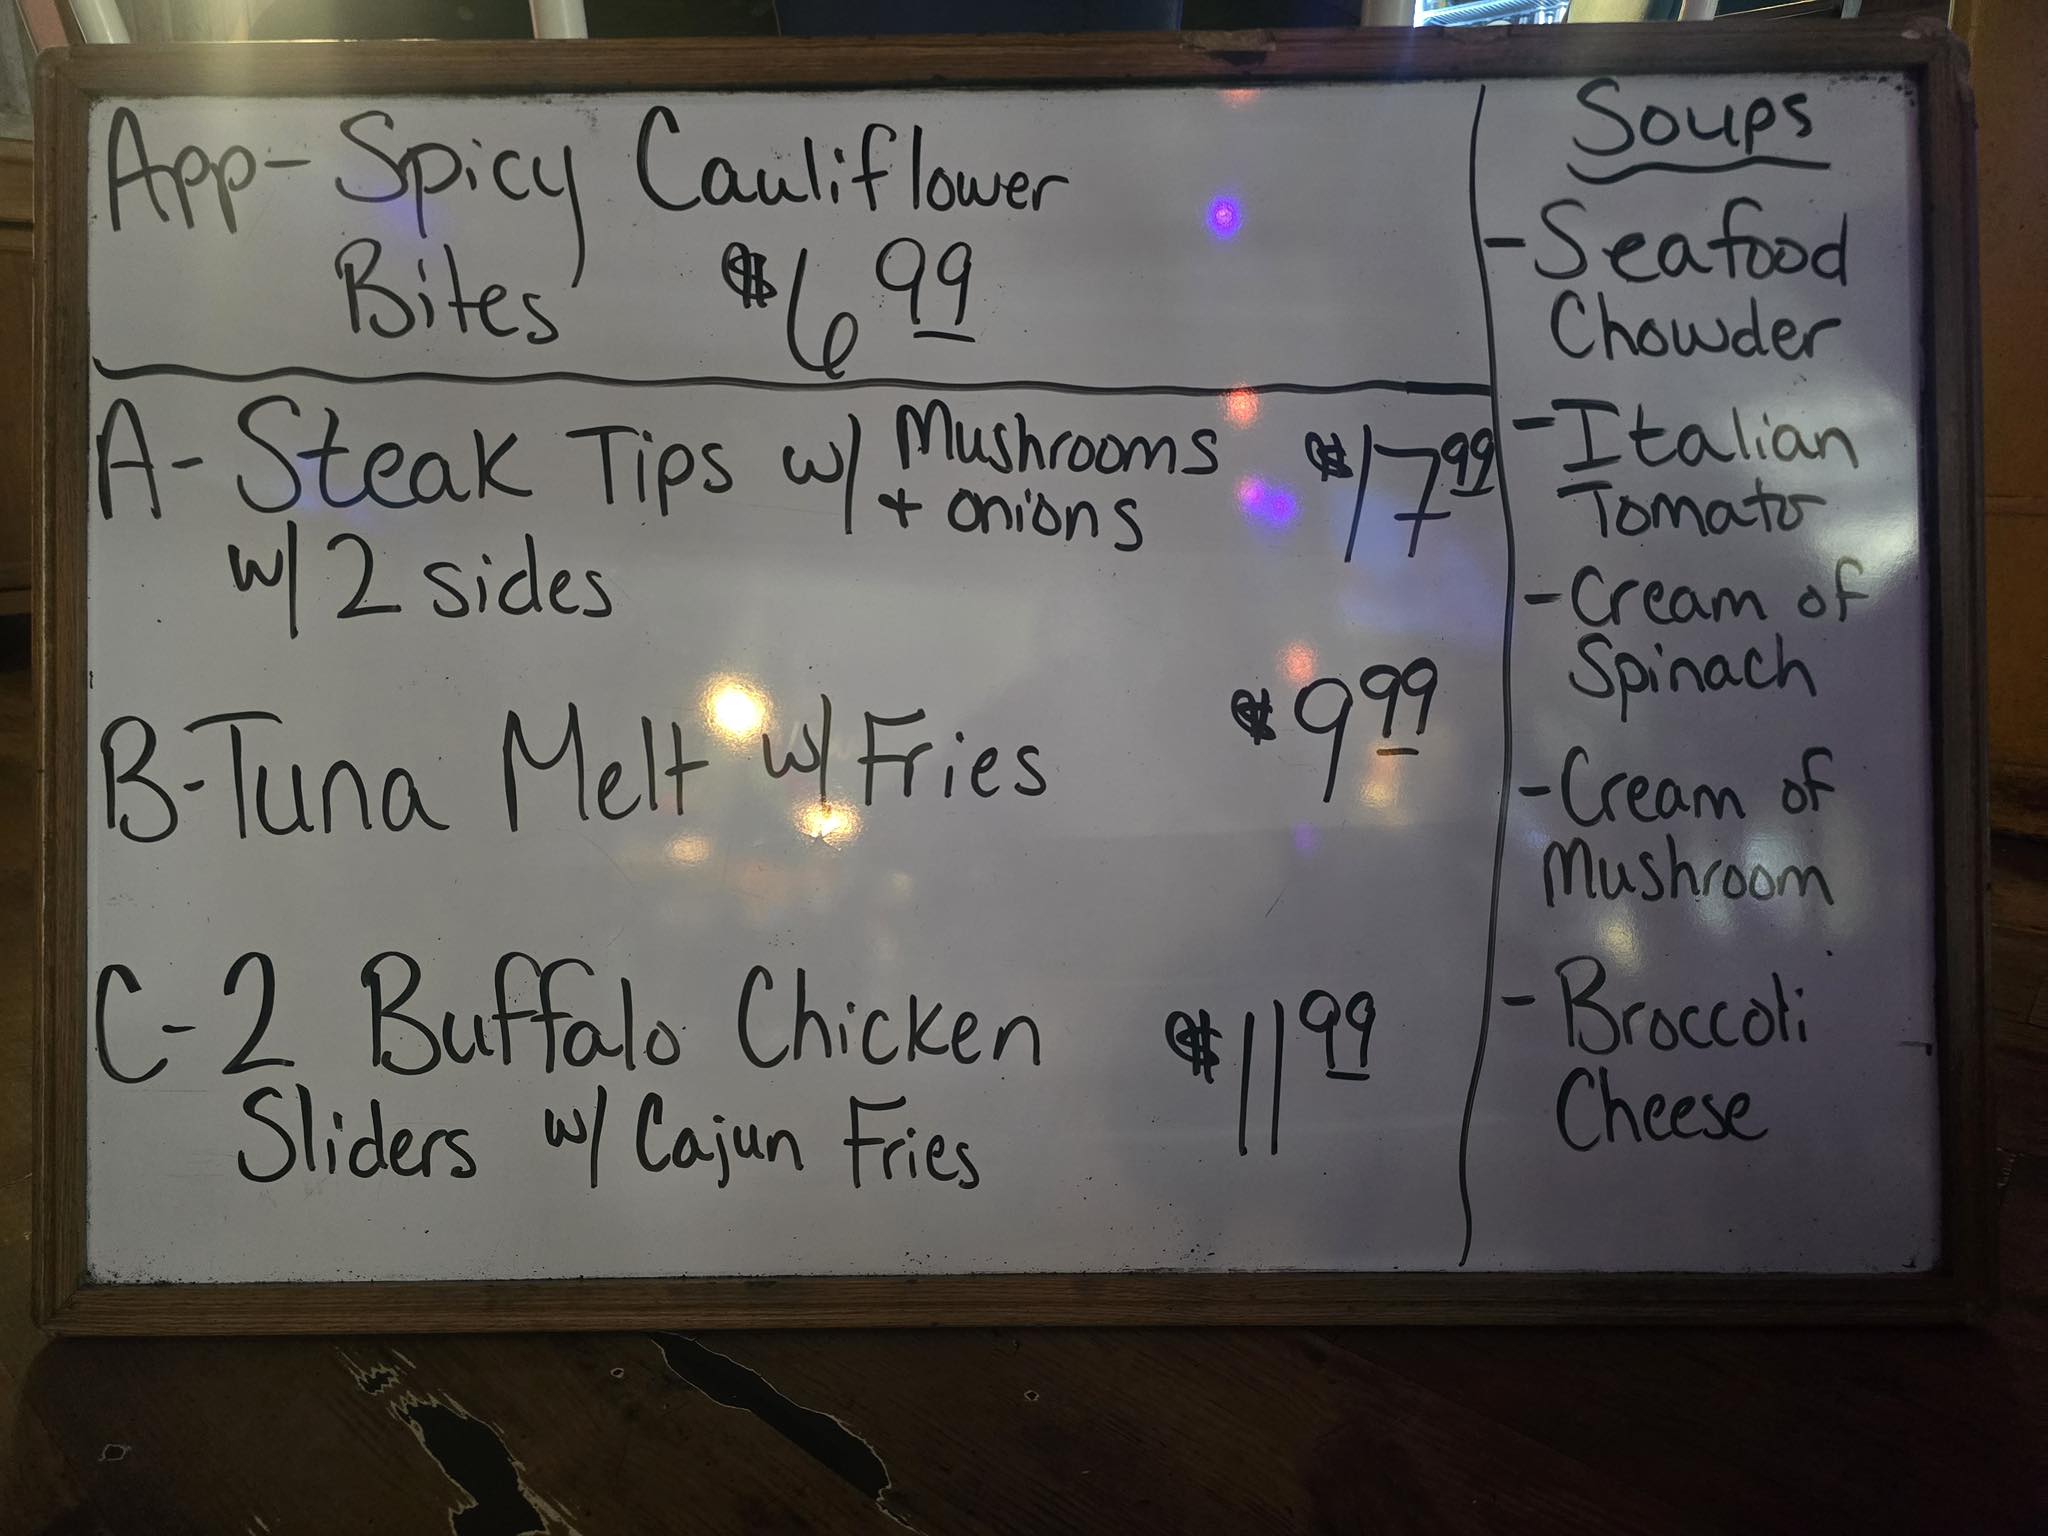 App- Spicy Cauliflower
Bites $6 99
A- Steak Tips w/ Mushrooms $17 99
+ onions
w/ 2 sides
B- Tuna Melt w/ Fries $9 99
C- 2 Buffalo Chicken $11 99
Sliders w/ Cajun Fries
Soups
- Seafood
Chowder
- Italian
Tomato
- Cream of
Spinach
- Cream of
Mushroom
- Broccoli
Cheese